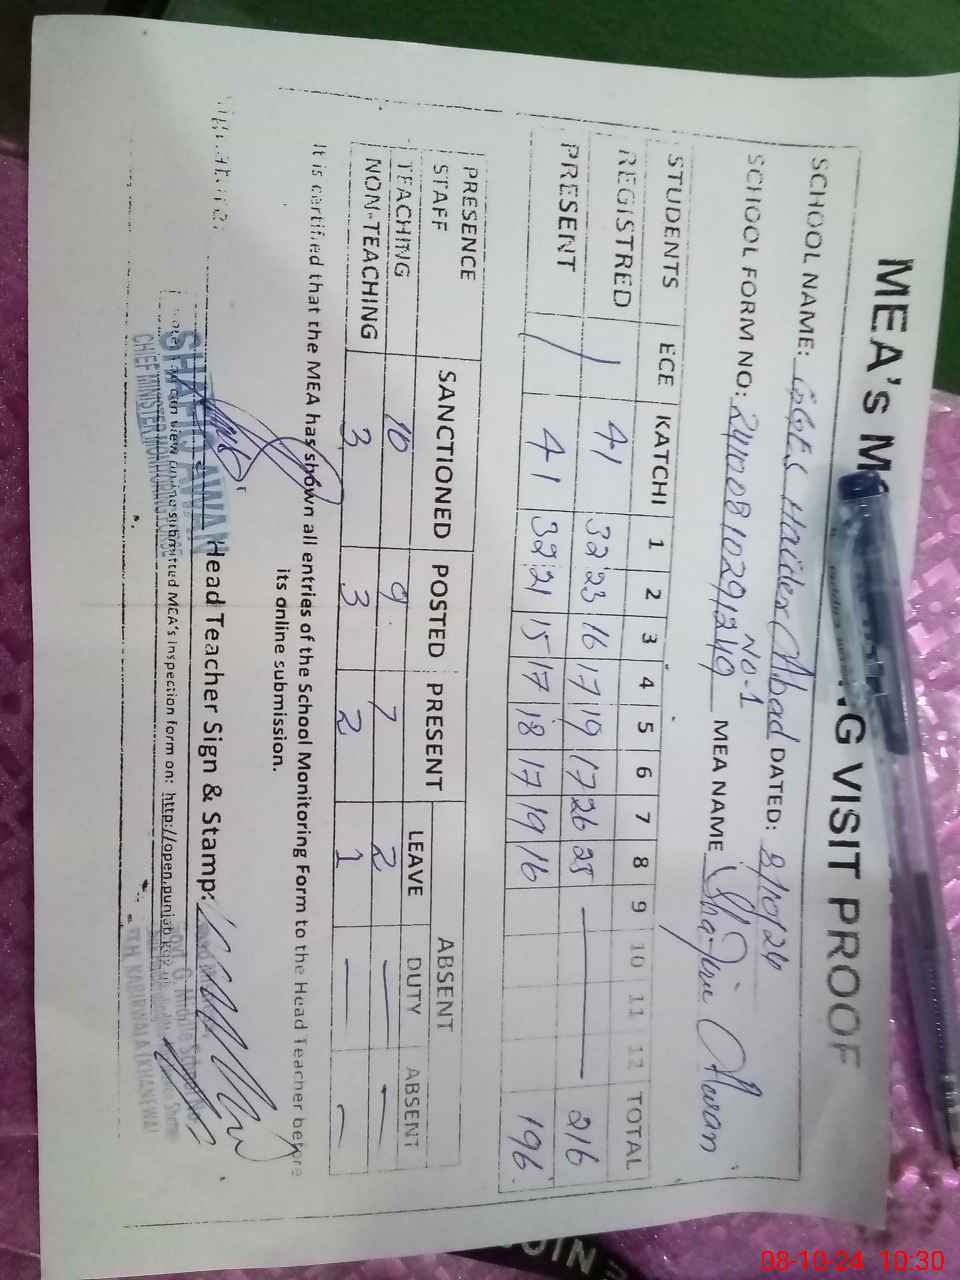 MEA'S M NG VISIT PROOF
SCHOOL NAME: GGES Haider Abad No-1 DATED: 8/10/24
SCHOOL FORM NO: MEA NAME Shafiq Awan
STUDENTS ECE KATCHI 1 2 3 4 5 6 7 8 9 10 11 12 TOTAL
REGISTRED / 41 32 23 16 17 19 17 26 25 — 216
PRESENT / 41 32 21 15 17 18 17 19 16 196
PRESENCE SANCTIONED POSTED PRESENT ABSENT
STAFF LEAVE DUTY ABSENT
TEACHING 10 9 7 2 — —
NON-TEACHING 3 3 2 1 — —
It is certified that the MEA has shown all entries of the School Monitoring Form to the Head Teacher before
its online submission.
Head Teacher Sign & Stamp:
SHAFIQ AWAN
CHIEF MINISTER MONITORING FORCE
view online submitted MEA's inspection form on: http://open.punjab.gov.pk
KABIRWALA (KHANEWAL
08-10-24 10:30